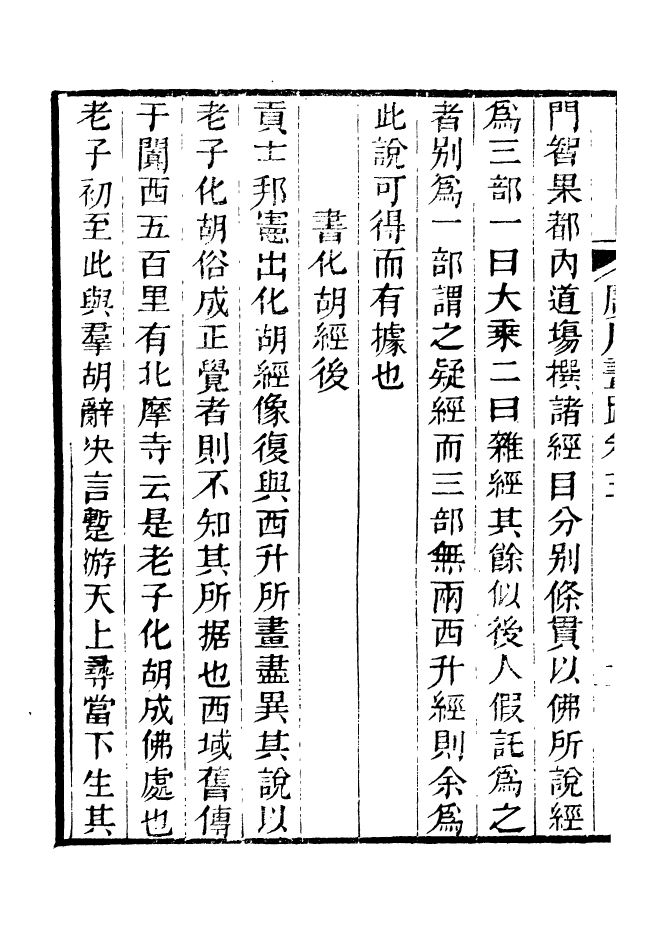 門智果都內道塲撰諸經目分别條貫以佛所說經
爲三部一曰大乘二曰雜經其餘似後人假託爲之
者别爲一部謂之疑經而三部無兩西升經則余爲
此說可得而有據也
書化胡經後
貢士邦憲出化胡經像復與西升所畫盡異其說以
老子化胡俗成正覺者則不知其所据也西域舊傳
于闐西五百里有北摩寺云是老子化胡成佛處也
老子初至此與羣胡辭决言蹔游天上尋當下生其